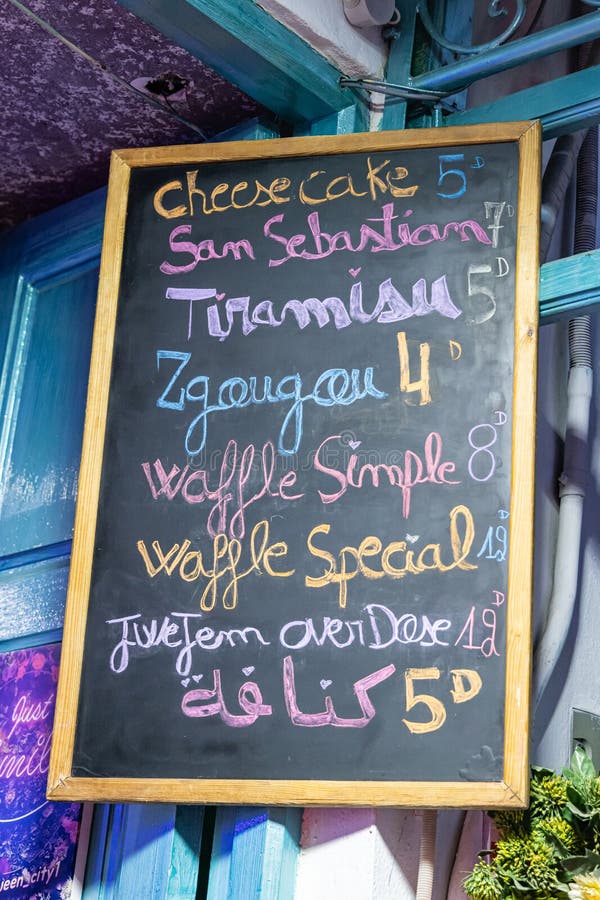 cheese cake 5D
San Sebastian 7D
Tiramisu 5D
Zgougou 4D
Waffle Simple 8D
Waffle Special 12D
JweJem over Dose 12D
كنافة 5D
Just